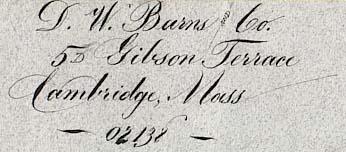 D. W. Burns and Co.
5D Gibson Terrace
Cambridge, Mass
— 02138 —